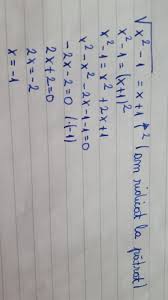 √x²-1 = x+1 |² (am ridicat la pătrat)
x²-1 = (x+1)²
x²-1 = x²+2x+1
x²-x²-2x-1-1=0
-2x-2=0 (·(-1)
2x+2=0
2x=-2
x=-1